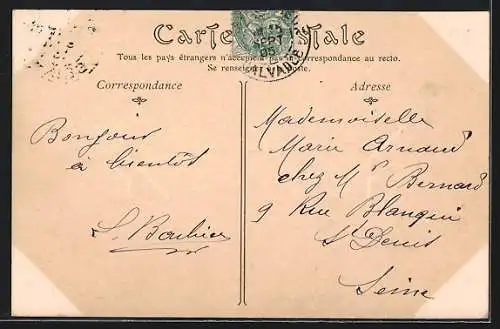 Carte Postale
Tous les pays étrangers n'acceptent pas la correspondance au recto.
Se renseigner à la poste.
Correspondance
Bonjour
à bientôt
Adresse
Mademoiselle
Marie Arnaud
chez Mr Bernard
9 Rue Blanqui
St Denis
Seine
CALVADOS